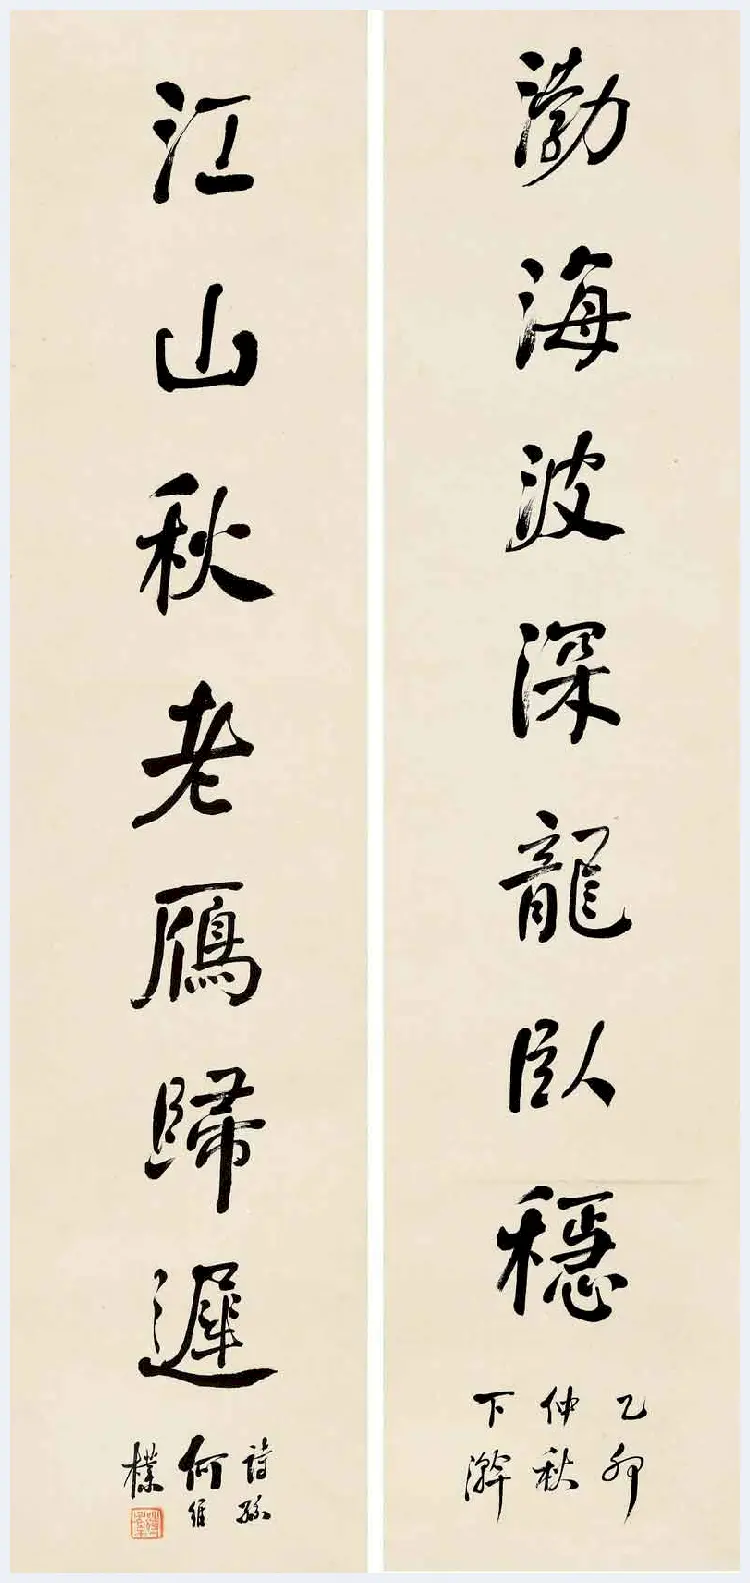 渤海波深龍臥穩
乙卯
仲秋
下澣
江山秋老鴈歸遲
詩孫
何維
樸